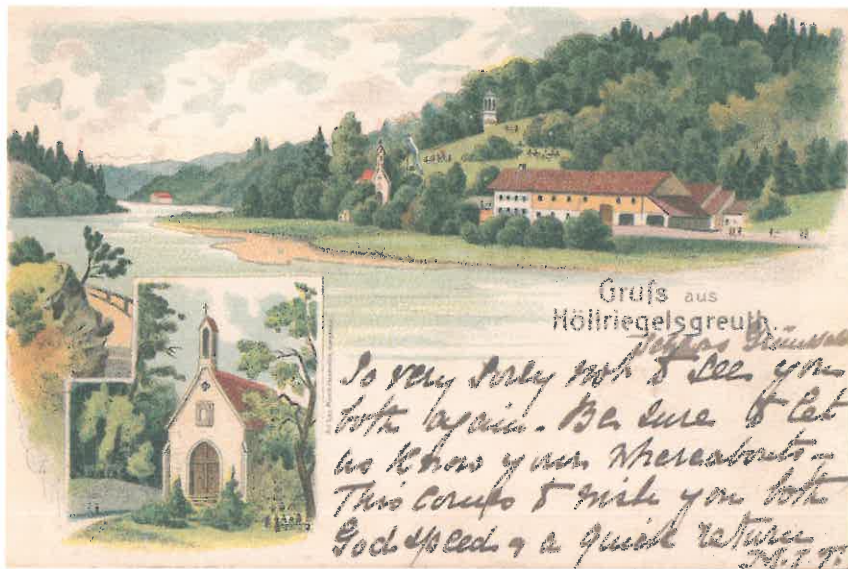 Gruß aus
Höllriegelsgreuth.
So very sorry not to see you
both again. Be sure & let
us know your whereabouts –
This comes to wish you both
Godspeed & a quick return